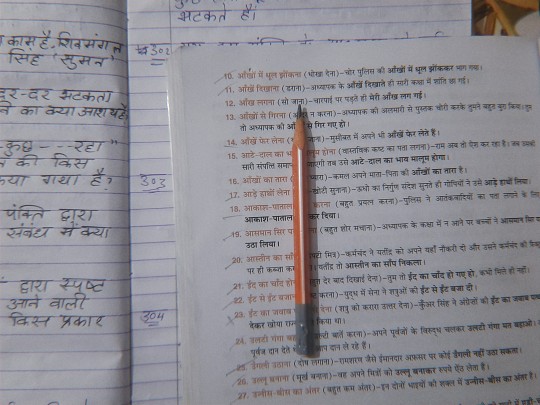 भटकते हैं।
302
कास है, शिवमंगल
सिंह 'सुमन'
दर-दर भटकता
का क्या आशय है?
कुछ - - रहा"
की किस
क्या गया है?
303
पंक्ति द्वारा
संबंध में क्या
द्वारा स्पष्ट
आने वाली
किस प्रकार
304
10. आँखों में धूल झोंकना (धोखा देना)–चोर पुलिस की आँखों में धूल झोंककर भाग गया।
11. आँखें दिखाना (डराना)–अध्यापक के आँखें दिखाते ही सारी कक्षा में शांति छा गई।
12. आँख लगना (सो जाना)–चारपाई पर पड़ते ही मेरी आँख लग गई।
13. आँखों से गिरना न करना)–अध्यापक की अलमारी से पुस्तक चोरी करके तुमने बहुत बुरा किया।
तो अध्यापक की से गिर गए हो।
14. आँखें फेर लेना –मुसीबत में अपने भी आँखें फेर लेते हैं।
15. आटे-दाल का होना (वास्तविक कष्ट का पता लगना)–राम अब तो ऐश कर रहा है। जब उसकी
सारी संपत्ति तब उसे आटे-दाल का भाव मालूम होगा।
16. आँखों का तारा –कमल अपने माता-पिता की आँखों का तारा है।
17. आड़े हाथों लेना खोटी सुनाना)–ऊधो का निर्गुण संदेश सुनते ही गोपियों ने उसे आड़े हाथों लिया।
18. आकाश-पाताल करना (बहुत प्रयत्न करना)–पुलिस ने आतंकवादियों का पता लगाने के लिए
आकाश-पाताल कर दिया।
19. आसमान सिर (बहुत शोर मचाना)–अध्यापक के कक्षा में न आने पर बच्चों ने आसमान सिर पर
उठा लिया।
20. आस्तीन का मित्र)–कर्मचंद ने यतींद्र को अपने यहाँ नौकरी दी और उसने कर्मचंद की
पर ही कब्जा यतींद्र तो आस्तीन का साँप निकला।
21. ईद का चाँद देर बाद दिखाई देना)–तुम तो ईद का चाँद हो गए हो, कभी मिले ही नहीं।
22. ईंट से ईंट करना)–युद्ध में सेना ने शत्रुओं की ईंट से ईंट बजा दी।
23. ईंट का जवाब देना (शत्रु को करारा उत्तर देना)–कुँअर सिंह ने अंग्रेजों को ईंट का जवाब
देकर खोया किया था।
24. उलटी गंगा बातें करना)–अपने पूर्वजों के विरुद्ध चलकर उलटी गंगा मत बहाओ।
पूर्वज दान देते आप दान ले रहे हैं।
25. उँगली उठाना (दोष लगाना)–रामशरण जैसे ईमानदार अफसर पर कोई उँगली नहीं उठा सकता।
26. उल्लू बनाना (मूर्ख बनाना)–वह अपने मित्रों को उल्लू बनाकर रुपये ऐंठ लेता है।
27. उन्नीस-बीस का अंतर (बहुत कम अंतर)–इन दोनों भाइयों की शक्ल में उन्नीस-बीस का अंतर है।